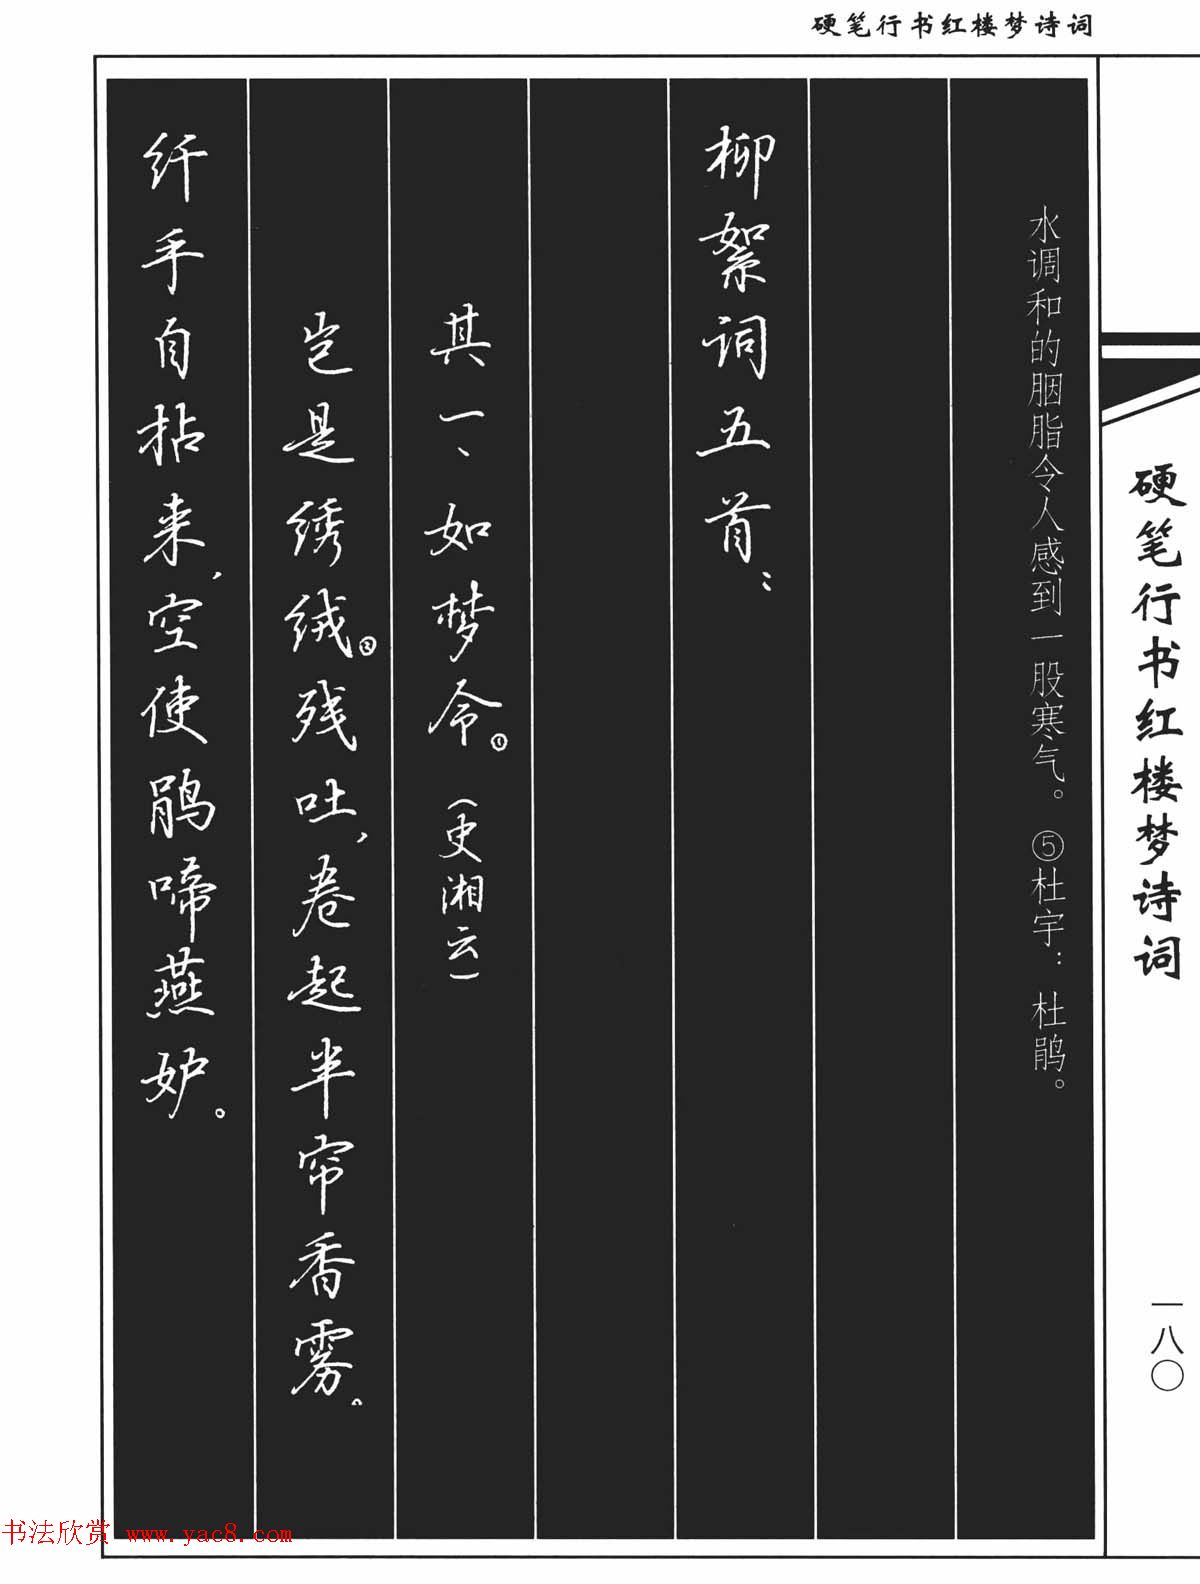 硬笔行书红楼梦诗词
硬笔行书红楼梦诗词
一八〇
水调和的胭脂令人感到一股寒气。 ⑤杜宇： 杜鹃。
柳絮词五首：
其一、如梦令。①(史湘云)
岂是绣绒。②残吐，卷起半帘香雾。
纤手自拈来，空使鹃啼燕妒。
书法欣赏 www.yac8.com